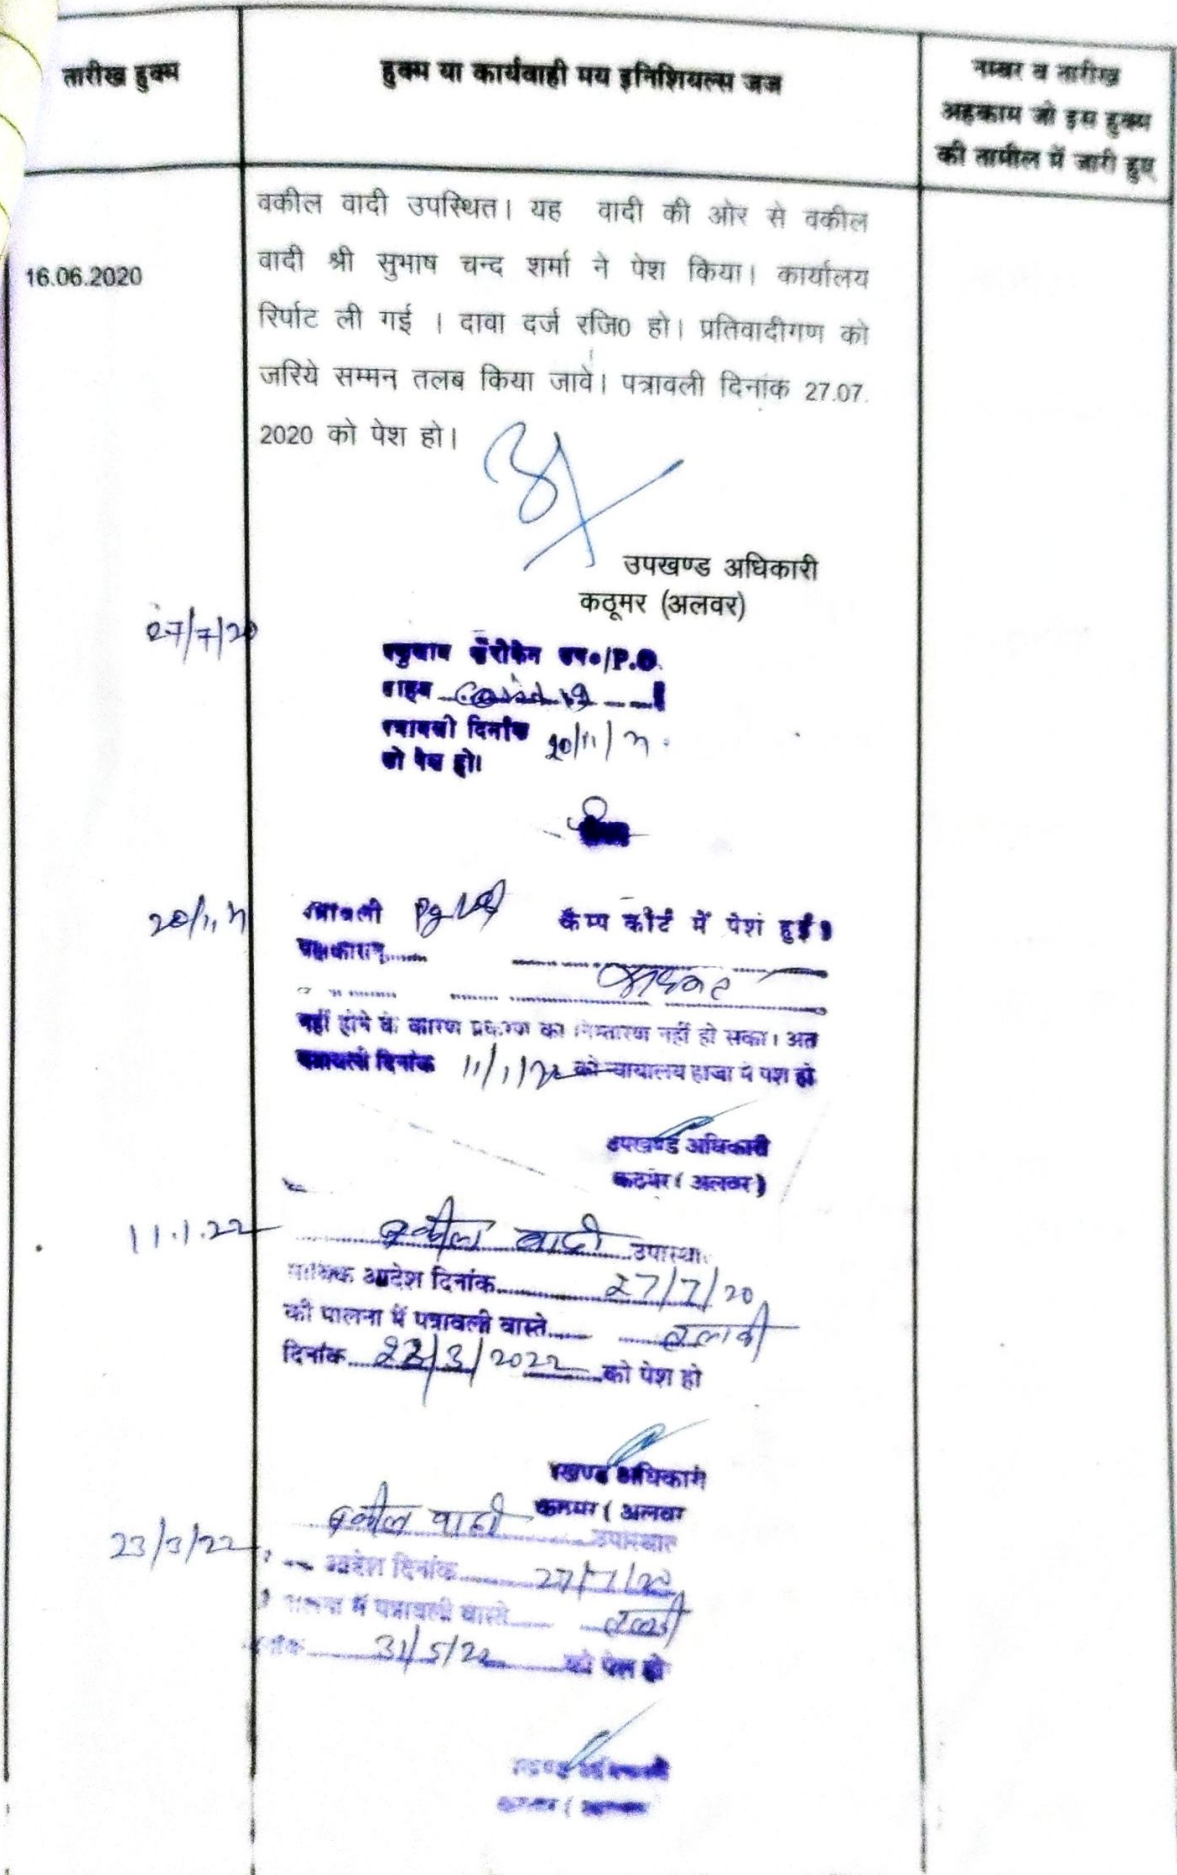 तारीख हुक्म
हुक्म या कार्यवाही मय इनिशियल्स जज
नम्बर व तारीख
अहकाम जो इस हुक्म
की तामील में जारी हुए
16.06.2020
वकील वादी उपस्थित। यह वादी की ओर से वकील
वादी श्री सुभाष चन्द शर्मा ने पेश किया। कार्यालय
रिर्पाट ली गई । दावा दर्ज रजि0 हो। प्रतिवादीगण को
जरिये सम्मन तलब किया जावे। पत्रावली दिनांक 27.07.
2020 को पेश हो।
उपखण्ड अधिकारी
कठूमर (अलवर)
27/7/20
P.O.
पत्रावली दिनांक 20/11/
को पेश हो।
पत्रावली कैम्प कोर्ट में पेश हुई।
पक्षकारान्
नहीं होने के कारण प्रकरण का निस्तारण नहीं हो सका। अत
पत्रावली दिनांक 11/1/22 को न्यायालय हाजा में पेश हो
उपखण्ड अधिकारी
कठूमर ( अलवर )
11.1.22
वकील वादी उपस्थि
आदेश दिनांक 27/7/20
की पालना में पत्रावली वास्ते तलबी
दिनांक 23/3/2022 को पेश हो
खण्ड अधिकारी
कठूमर ( अलवर
23/3/22
वकील वादी उपस्थित
आदेश दिनांक 27/7/20
पालना में पत्रावली वास्ते तलबी
31/5/22 को पेश हो